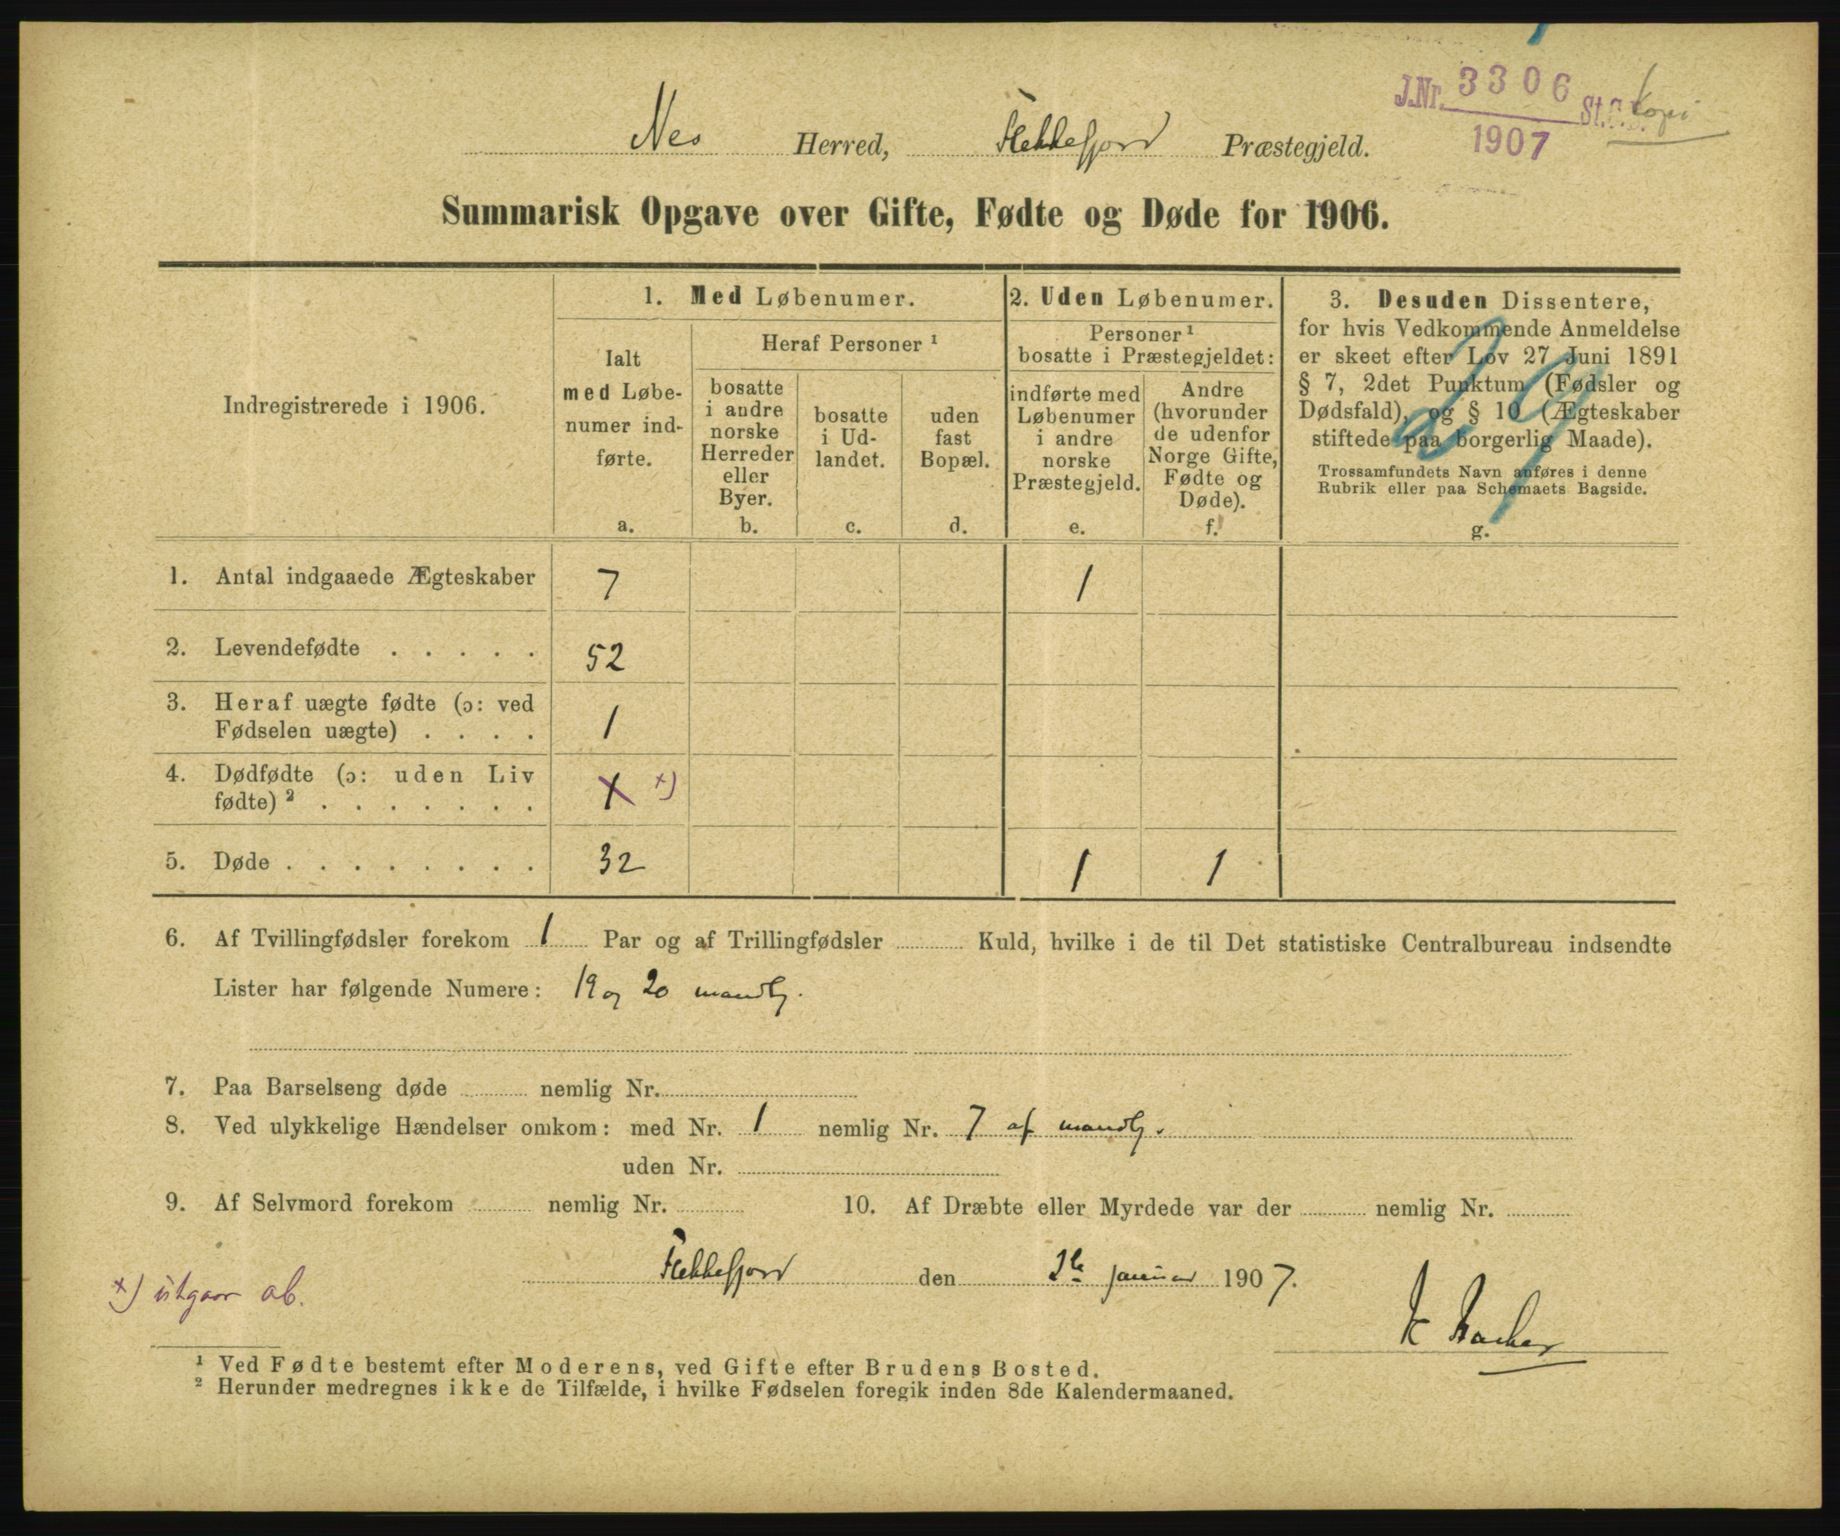 J.Nr. 3306 St.C.B. Kopi
1907
Nes Herred, Flekkefjord Præstegjeld.
Summarisk Opgave over Gifte, Fødte og Døde for 1906.
Indregistrerede i 1906.
1. Med Løbenumer.
Ialt
med Løbe-
numer ind-
førte.
a.
Heraf Personer ¹
bosatte
i andre
norske
Herreder
eller
Byer.
b.
bosatte
i Ud-
landet.
c.
uden
fast
Bopæl.
d.
2. Uden Løbenumer.
Personer ¹
bosatte i Præstegjeldet:
indførte med
Løbenumer
i andre
norske
Præstegjeld.
e.
Andre
(hvorunder
de udenfor
Norge Gifte,
Fødte og
Døde).
f.
3. Desuden Dissentere,
for hvis Vedkommende Anmeldelse
er skeet efter Lov 27 Juni 1891
§ 7, 2det Punktum (Fødsler og
Dødsfald), og § 10 (Ægteskaber
stiftede paa borgerlig Maade).
Trossamfundets Navn anføres i denne
Rubrik eller paa Schemaets Bagside.
g.
29
1. Antal indgaaede Ægteskaber 7 1
2. Levendefødte . . . . . 52
3. Heraf uægte fødte (ɔ: ved
Fødselen uægte) . . . . 1
4. Dødfødte (ɔ: uden Liv
fødte) ² . . . . . . . 1 x)
5. Døde . . . . . . . . 32 1 1
6. Af Tvillingfødsler forekom 1 Par og af Trillingfødsler Kuld, hvilke i de til Det statistiske Centralbureau indsendte
Lister har følgende Numere: 19 og 20 mandkj.
7. Paa Barselseng døde nemlig Nr.
8. Ved ulykkelige Hændelser omkom: med Nr. 1 nemlig Nr. 7 af mandkj.
uden Nr.
9. Af Selvmord forekom nemlig Nr. 10. Af Dræbte eller Myrdede var der nemlig Nr.
Flekkefjord den januar 1907.
x) utgaar ab.
¹ Ved Fødte bestemt efter Moderens, ved Gifte efter Brudens Bosted.
² Herunder medregnes ikke de Tilfælde, i hvilke Fødselen foregik inden 8de Kalendermaaned.